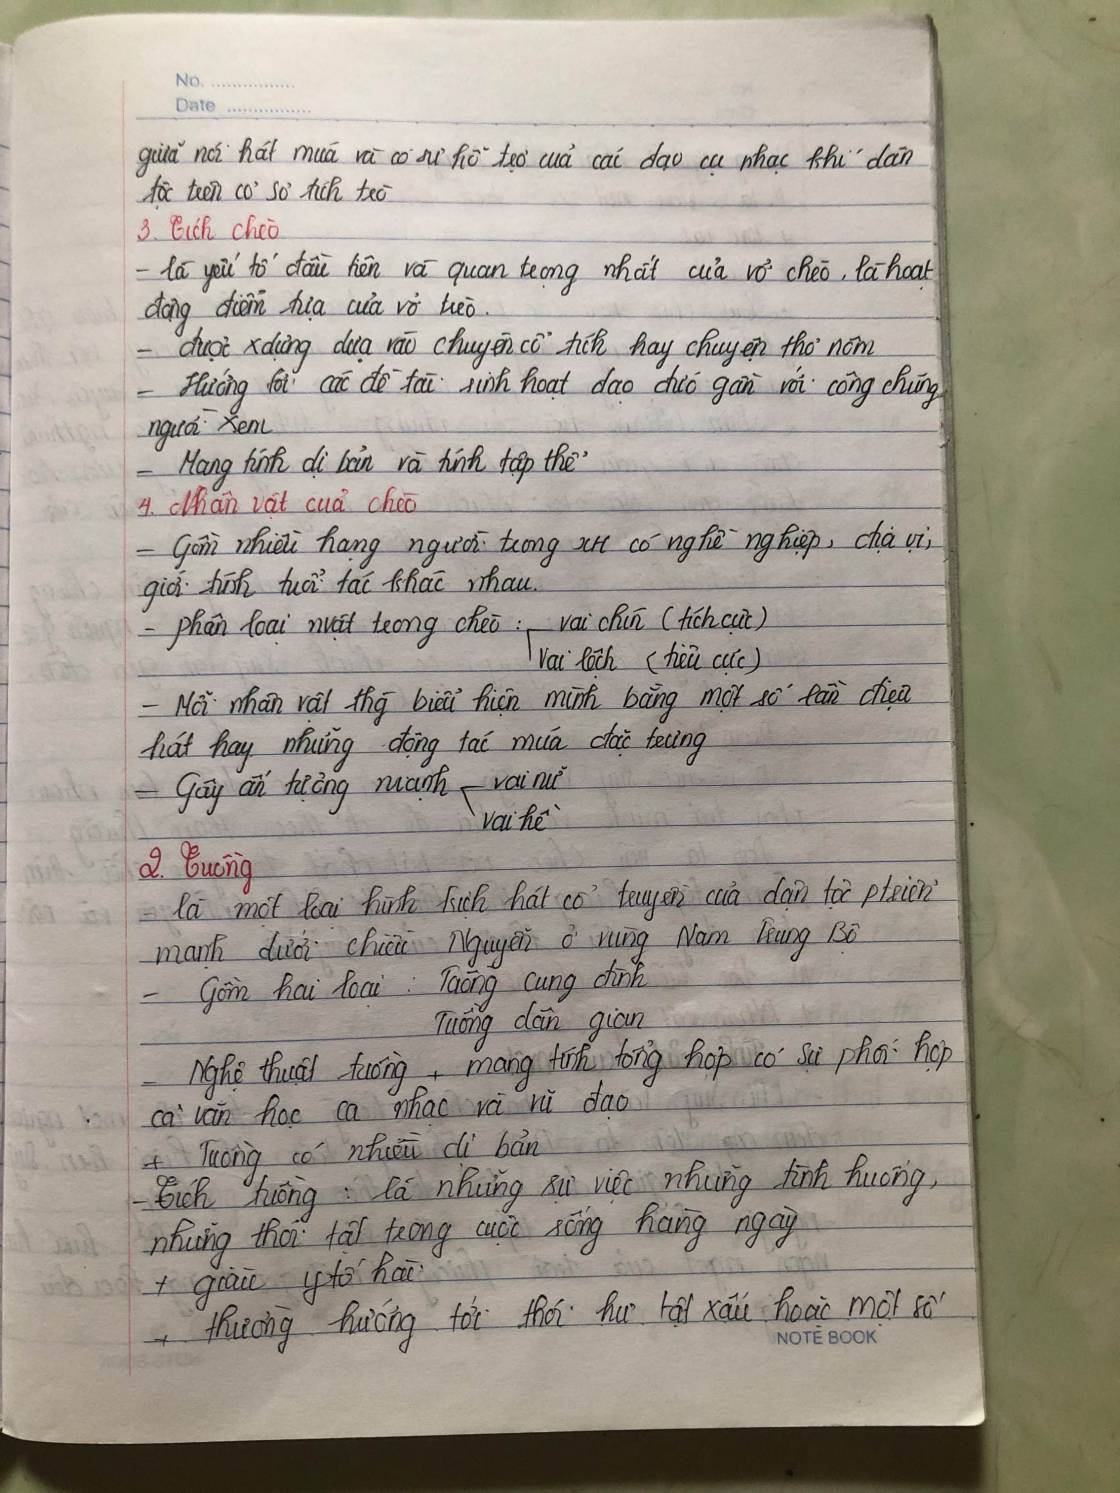 No. ................
Date ................
giữa nói hát múa và có sự hỗ trợ của các đạo cụ nhạc khí dân
tộc trên cơ sở tích trò
3. Tích chèo
- là yếu tố đầu tiên và quan trọng nhất của vở chèo, là hoạt
động điểm tựa của vở trèo.
- được xdựng dựa vào chuyện cổ tích hay chuyện thơ nôm
- Hướng tới các đề tài sinh hoạt đạo đức gần với công chúng
người xem
- Mang tính dị bản và tính tập thể
4. Nhân vật của chèo
- Gồm nhiều hạng người trong XH có nghề nghiệp, địa vị,
giới tính tuổi tác khác nhau.
- phân loại nvật trong chèo : vai chín (tích cực)
vai lệch (tiêu cực)
- Mỗi nhân vật thg biểu hiện mình bằng một số làn điệu
hát hay những động tác múa đặc trưng
- Gây ấn tượng mạnh vai nữ
vai hề
2. Tuồng
- là một loại hình kịch hát cổ truyền của dân tộc ptriển
mạnh dưới chiều Nguyễn ở vùng Nam Trung Bộ
- Gồm hai loại : Tuồng cung đình
Tuồng dân gian
- Nghệ thuật tuồng + mang tính tổng hợp có sự phối hợp
cả văn học ca nhạc và vũ đạo
+ Tuồng có nhiều dị bản
- Tích tuồng : là những sự việc những tình huống,
những thói tật trong cuộc sống hàng ngày
+ giàu ytố hài
+ thường hướng tới thói hư tật xấu hoặc một số
NOTE BOOK